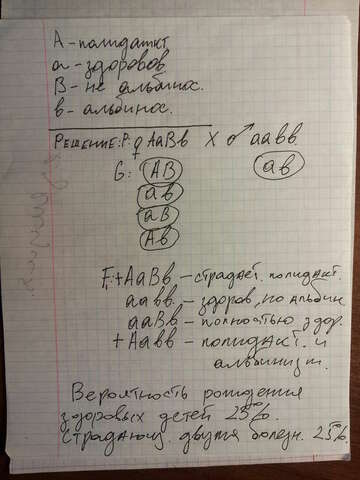 А - полидакт
а - здоровов
В - не альбинос.
в - альбинос.
РЕШЕНИЕ: P: ♀ АаВв X ♂ аавв
G: АВ ав
ав
аВ
Ав
F₁ + АаВв - страдает. полидакт.
аавв - здоров, но альбин
ааВв - полностью здор.
+ Аавв - полидакт. и
альбинизм.
Вероятность рождения
здоровых детей 25%.
Страдающ. двумя болезн. 25%.